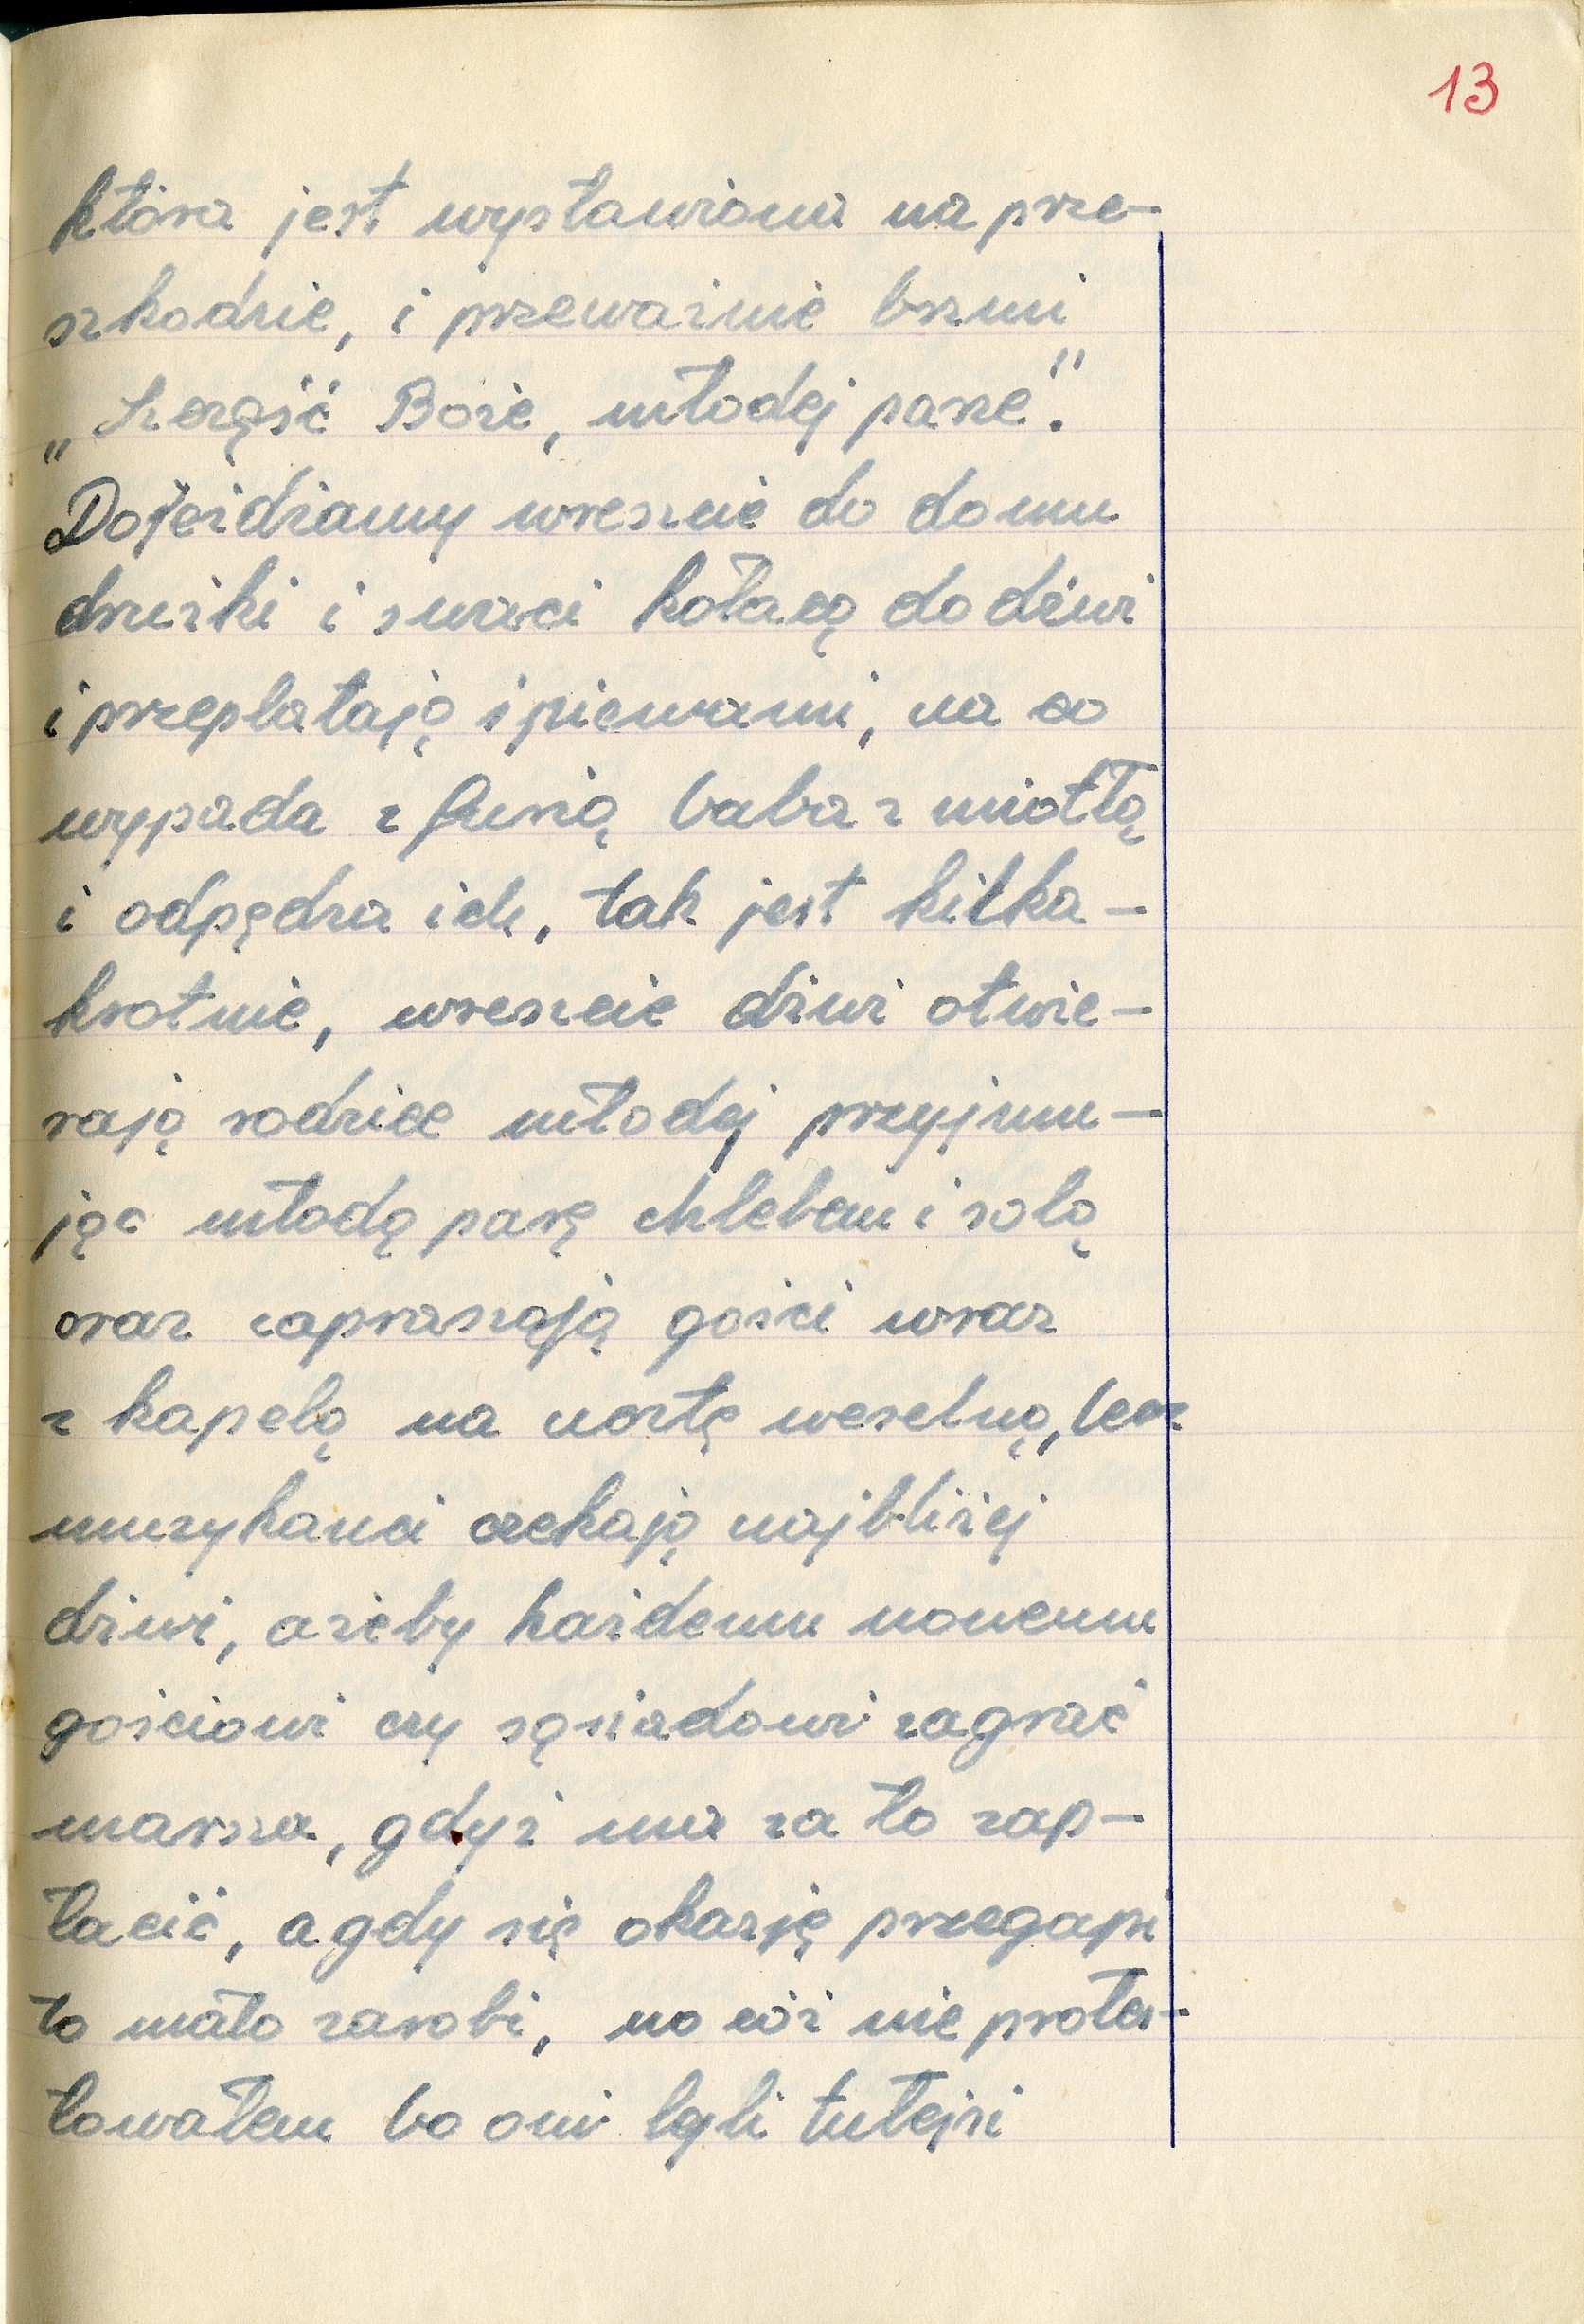 13
która jest wystawiona na prze-
szkodzie, i przeważnie brzmi
„Szczęść Boże, młodej parze".
Dojeżdżamy wreszcie do domu
drużki i swaci kołacą do dźwi
i przeplatają śpiewami, na co
wypada z furią baba z miotłą
i odpędza ich, tak jest kilka-
krotnie, wreszcie dźwi otwie-
rają rodzice młodej przyjmu-
jąc młodą parę chlebem i solą
oraz zapraszają gości wraz
z kapelą na ucztę weselną, lecz
muzykanci czekają najbliżej
dźwi, ażeby każdemu nowemu
gościowi czy sąsiadowi zagrać
marsza, gdyż ma za to zap-
łacić, a gdy się okazję przegapi
to mało zarobi, no cóż nie protes-
towałem bo oni byli tutejsi